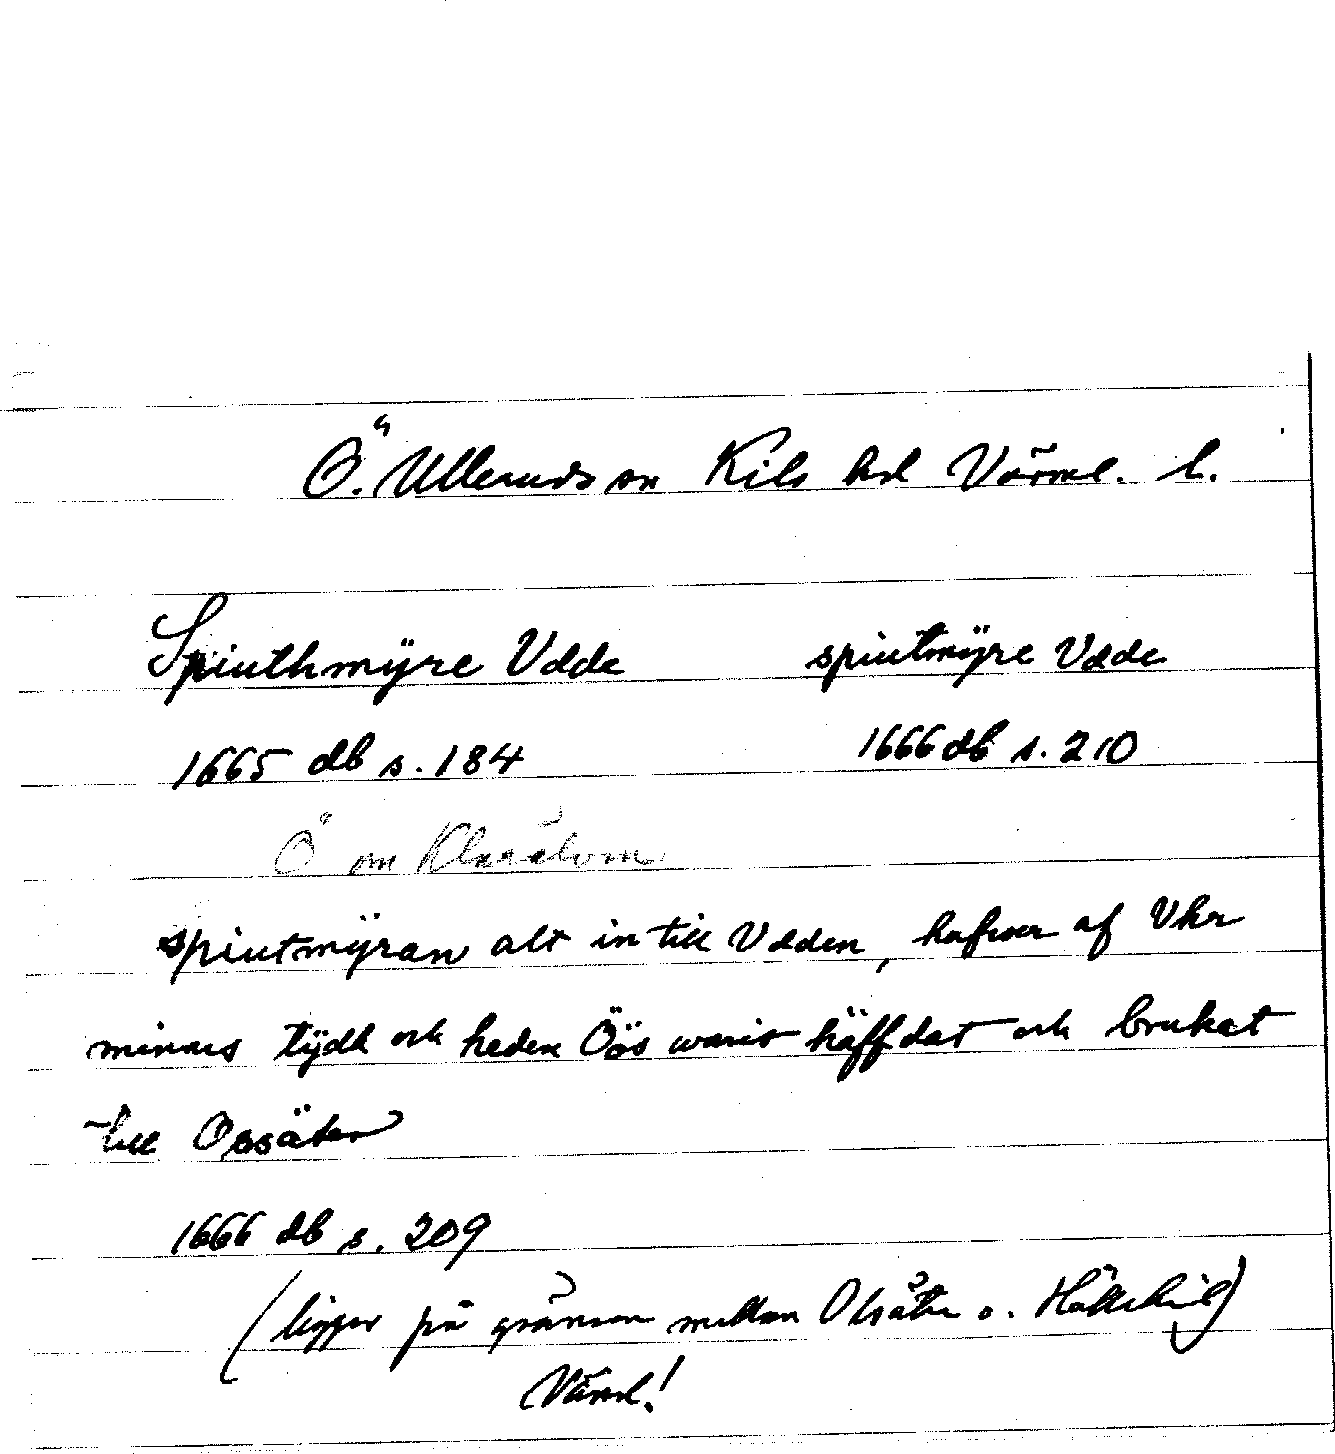 Ö. Ulleruds sn Kils hd Värml. l.
Spiuthmÿre Vdde spiutmÿre Vdde
1665 db s. 184 1666 db s. 210
Ö om Klarälven
spiutmÿran alt in till Vdden, hafwer af Vhr
minnes tÿdh och heden Öös warit häffdat och brukat
till Ossäter
1666 db s. 209
(ligger på gränsen mellan Olsäter o.
Vänd!